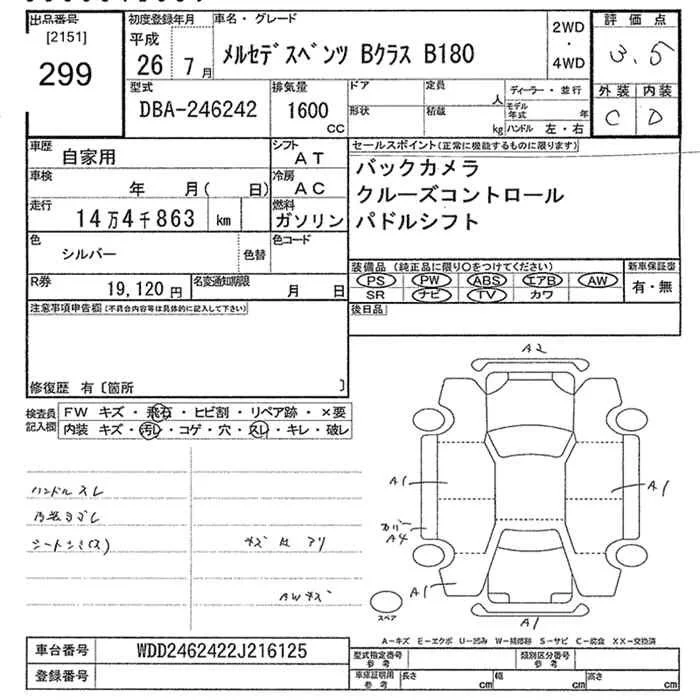 出品番号
[2151]
299
初度登録年月
平成
26 7月
車名・グレード
メルセデスベンツ Bクラス B180
2WD
・
4WD
評価点
3.5
外装 内装
C D
型式
DBA-246242
排気量
1600
cc
ドア
形状
定員
人
積載
kg
ディーラー・並行
モデル年式 年
ハンドル 左・右
車歴
自家用
シフト
AT
車検
年 月( 日)
冷房
AC
走行
14万4千863 km
燃料
ガソリン
色
シルバー
色替
色コード
R券
19,120 円
名変通知期限
月 日
セールスポイント(正常に機能するものに限ります)
バックカメラ
クルーズコントロール
パドルシフト
装備品 (純正品に限り○をつけてください)
PS PW ABS エアB AW
SR ナビ TV カワ
新車保証書
有・無
後日品
注意事項申告欄(不具合内容等は具体的に記入して下さい)
修復歴 有〔箇所 〕
検査員記入欄
FW キズ・飛石・ヒビ割・リペア跡・×要
内装 キズ・汚レ・コゲ・穴・スレ・キレ・破レ
ハンドルスレ
内装ヨゴレ
シートシミ(ス)
キズ 凹 アリ
AWキズ
A2
A1
A1
カバー
A4
A1
A1
スペア
A-キズ E-エクボ U-凹み W-補修跡 S-サビ C-腐食 XX-交換済
車台番号
WDD2462422J216125
登録番号
型式指定番号
参考
類別区分番号
参考
車庫証明用
参考
長さ cm
幅 cm
高さ cm